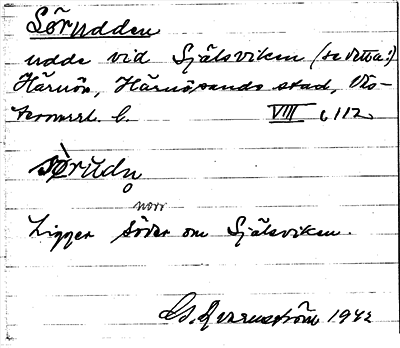 Sörudden
udde vid Själsviken (se detta!)
Härnön, Härnösands stad, Väs-
ternorrl. l. VIII c 112.
sø̀rùdn̥
norr
Ligger söder om Själsviken.
G. Qvarnström 1942